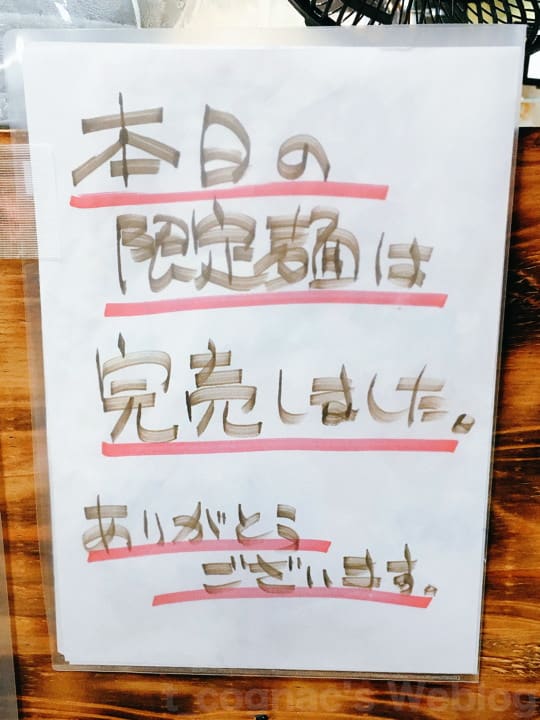 本日の
限定麺は
完売しました。
ありがとう
ございます。
t cognac's Weblog